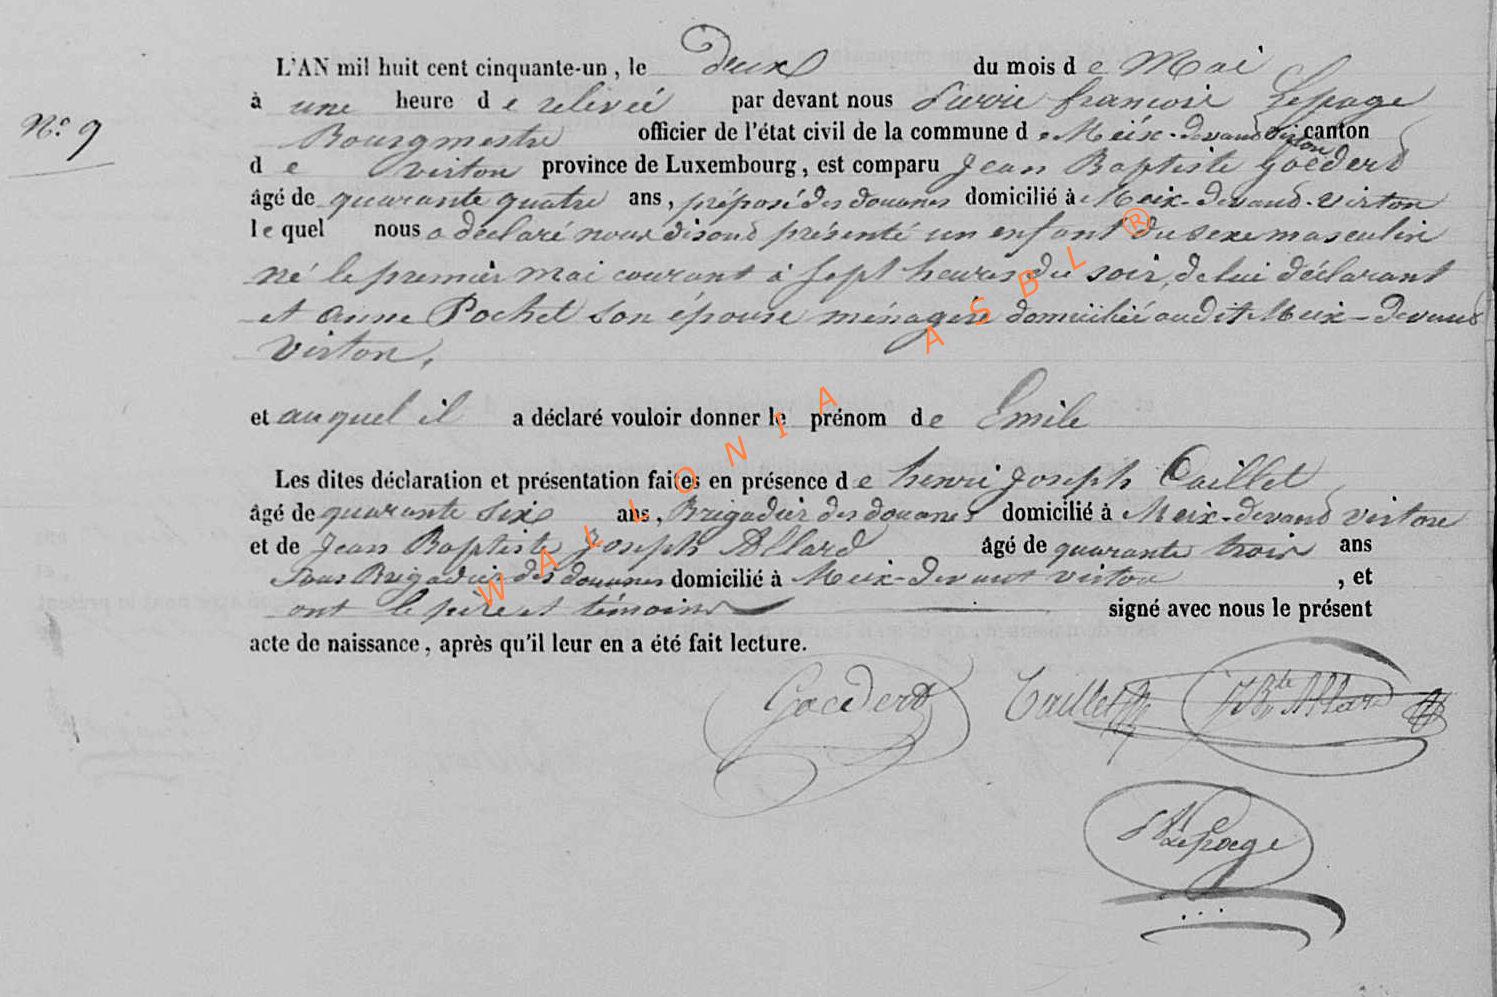 L'AN mil huit cent cinquante-un, le deux du mois de Mai
à une heure de relevée par devant nous Pierre françois Lepage
N.° 9
Bourgmestre officier de l'état civil de la commune de Meix-devant-virton canton
de virton province de Luxembourg, est comparu Jean Baptiste Goederd
âgé de quarante quatre ans, préposé des douanes domicilié à Meix-devand-virton
lequel nous a déclaré nous disond présenté un enfant du sexe masculin
né le premier mai courant à sept heures du soir, de lui déclarant
et anne Pochet son épouse ménagère domiciliée audit Meix-devand
virton,
et auquel il a déclaré vouloir donner le prénom de Emile
Les dites déclaration et présentation faites en présence de henri joseph Caillet
âgé de quarante six ans, Brigadier des douanes domicilié à Meix-devand virton
et de Jean Baptiste joseph Allard âgé de quarante trois ans
Sous Brigadier des douanes domicilié à Meix-devant virton, et
ont le père et témoins signé avec nous le présent
acte de naissance, après qu'il leur en a été fait lecture.
Goederd Caillet JBte Allard
Lepage
WALLONIA ASBL ®